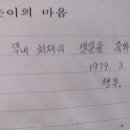 이의 마음
막내 처제의 생일을 축하
1979. 3.
형부.